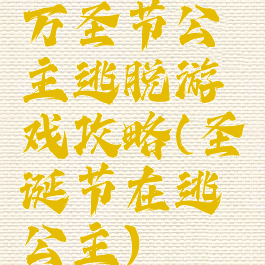 万圣节公
主逃脱游
戏攻略(圣
诞节在逃
公主)